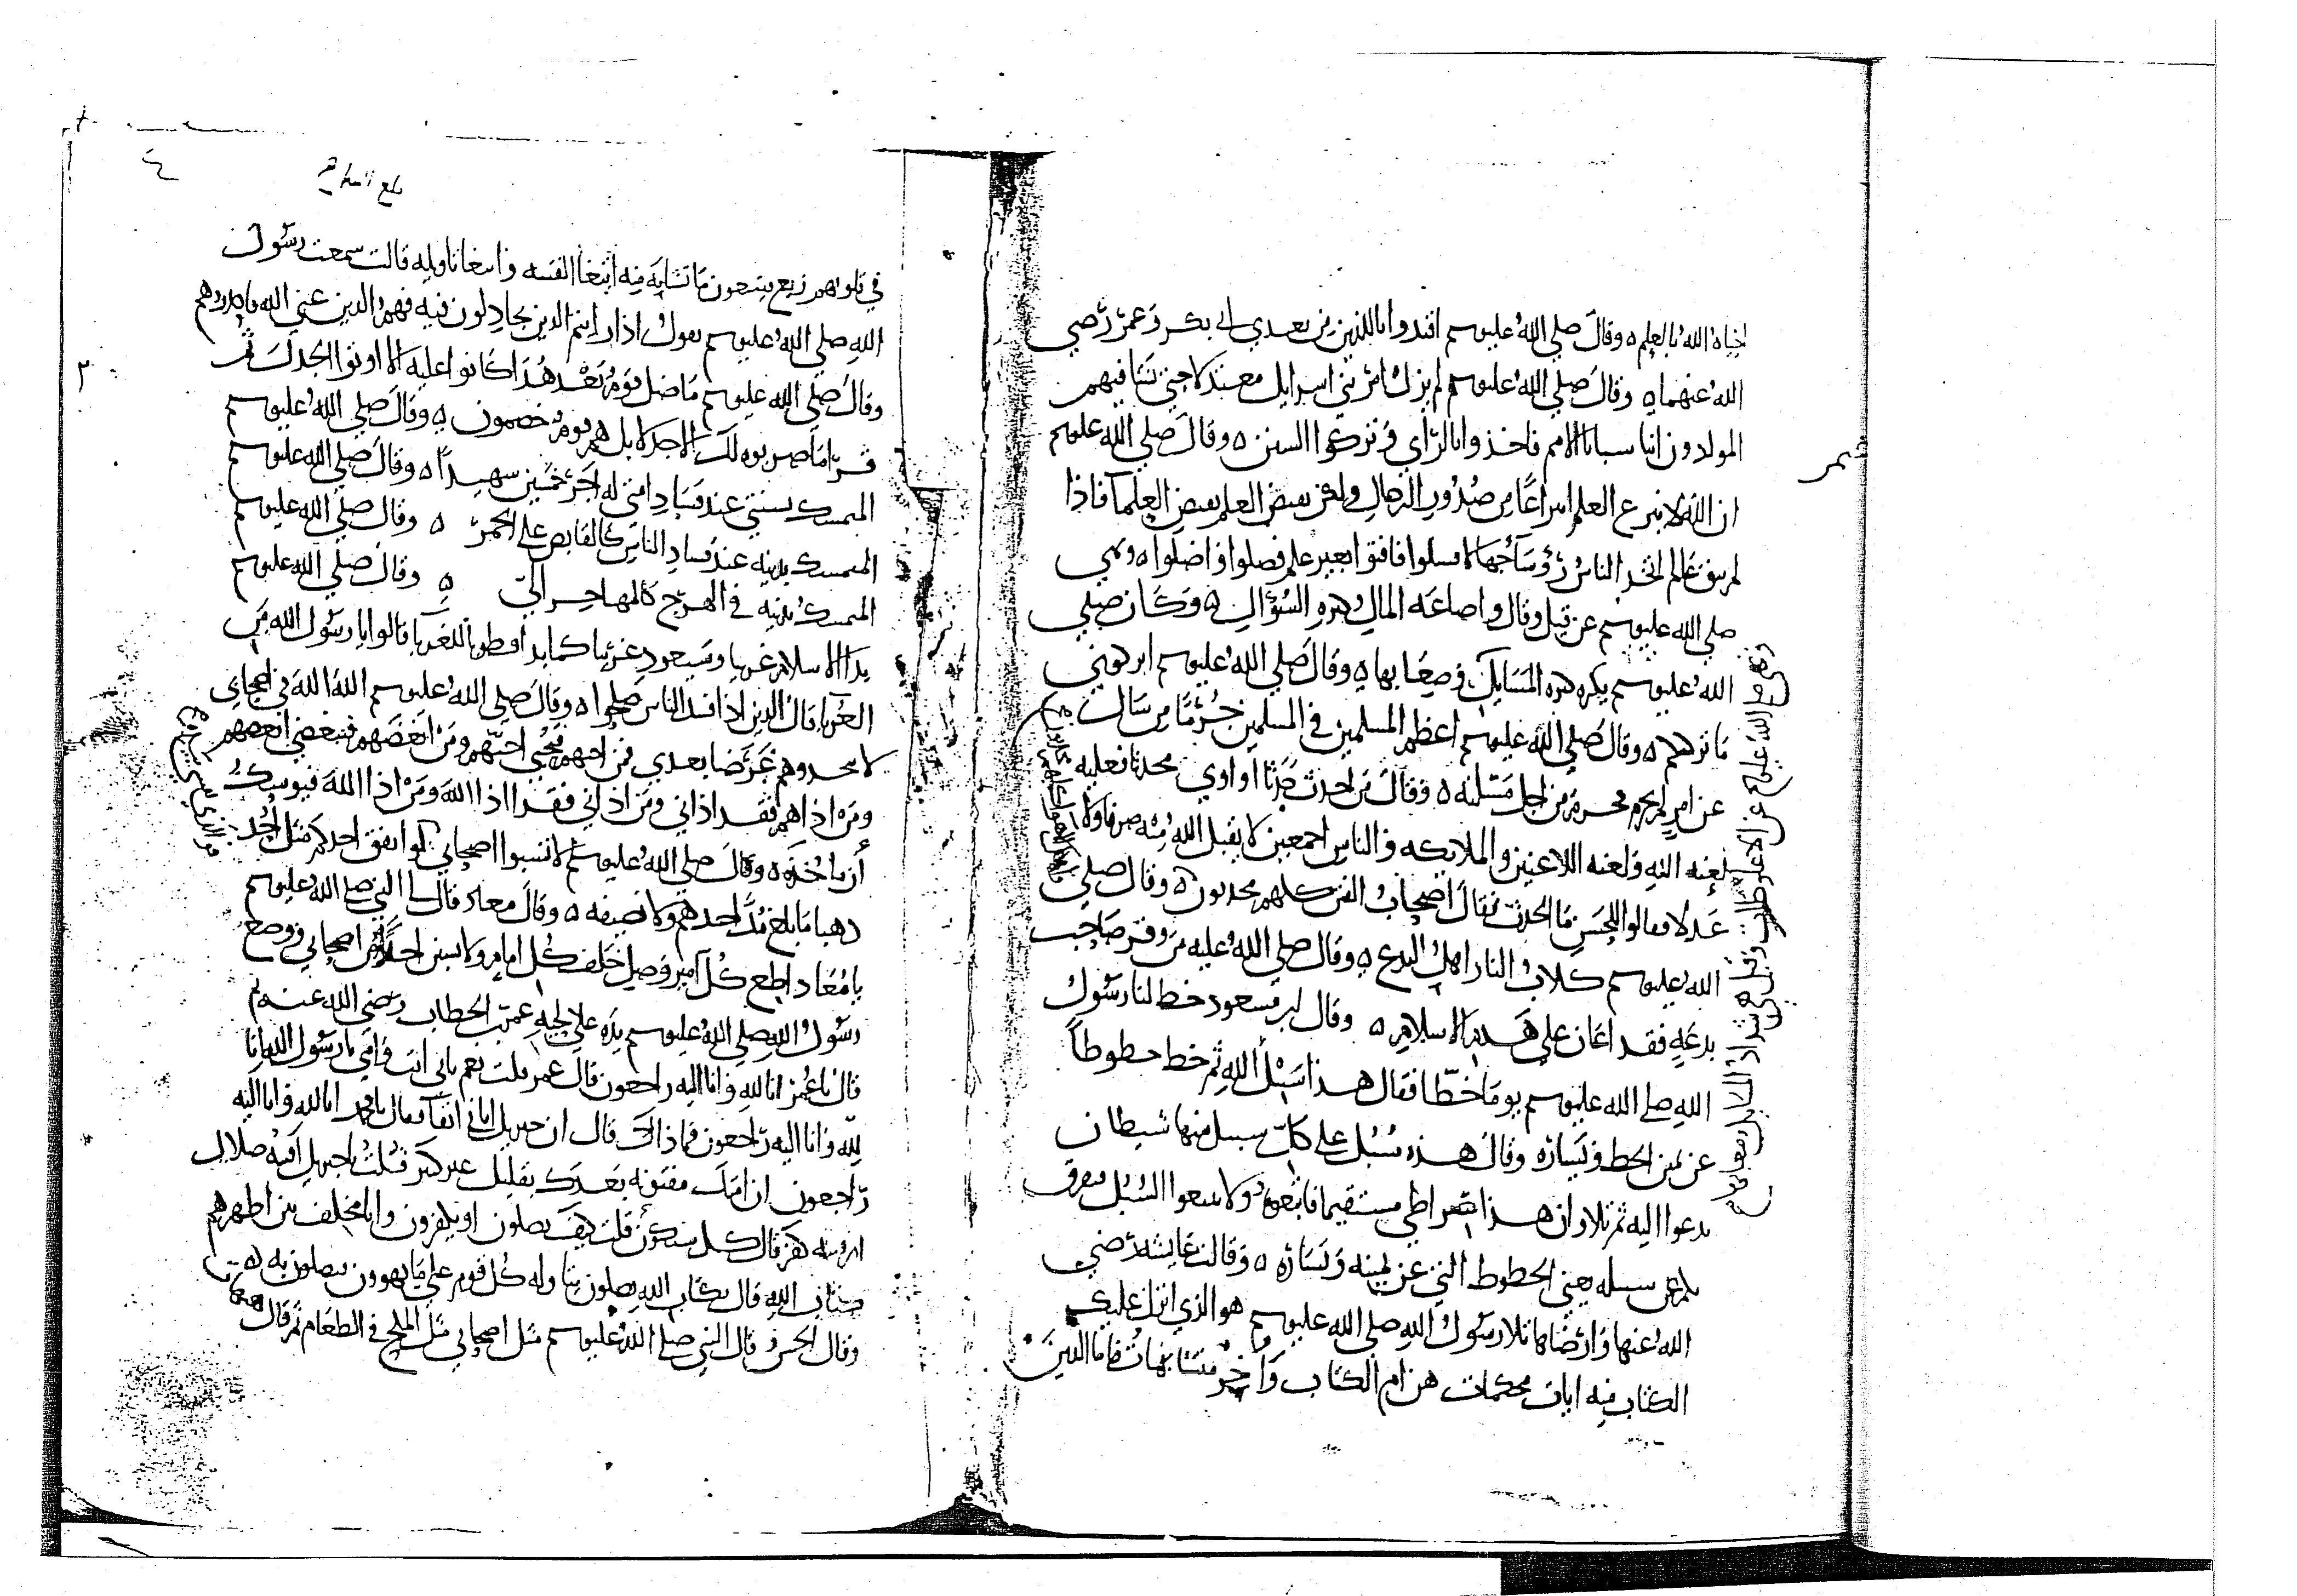 احياه الله بالعلم ٥ وقال صلى الله عليه وسلم اقتدوا باللذين من بعدي ابي بكر وعمر رضي
الله عنهما ٥ وقال صلى الله عليه وسلم لم يزل امر بني اسرايل معتدلا حتى نشا فيهم
المولدون ابنا سبايا الامم فاخذوا بالراي وتركوا السنن ٥ وقال صلى الله عليه وسلم
ان الله لا ينزع العلم انتزاعا من صدور الرجال ولكن بقبض العلم بقبض العلما فاذا
لم يبق عالم اتخذ الناس رؤسا جهالا فسلوا فافتوا بغير علم فضلوا واضلوا ٥ ونهى
صلى الله عليه وسلم عن قيل وقال واضاعه المال وكثره السؤال ٥ وكان صلى
الله عليه وسلم يكره كثره المسايل ويعيبها ٥ وقال صلى الله عليه وسلم اتركوني
ما تركتكم ٥ وقال صلى الله عليه وسلم اعظم المسلمين في المسلمين جرما من سال
عن امر لم يحرم فحرم من اجل مسئلته ٥ وقال من احدث حدثا او اوي محدثا فعليه
لعنه الله ولعنه اللاعنين والملايكه والناس اجمعين لا يقبل الله منه صرفا ولا
عدلا فقالوا للحسن ما الحدث فقال اصحاب الفتن كلهم محدثون ٥ وقال صلى
الله عليه وسلم كلاب النار اهل البدع ٥ وقال صلى الله عليه من وقر صاحب
بدعه فقد اعان على هدم الاسلام ٥ وقال ابن مسعود خط لنا رسول
الله صلى الله عليه وسلم يوما خطا فقال هذا سبيل الله ثم خط خطوطا
عن يمين الخط ويساره وقال هذه سبل على كل سبيل منها شيطان
يدعوا اليه ثم تلا وان هذا صراطي مستقيما فاتبعوه ولا تتبعوا السبل فتفرق
بكم عن سبيله يعني الخطوط التي عن يمينه ويساره ٥ وقالت عايشه رضي
الله عنها وارضاها تلا رسول الله صلى الله عليه وسلم هو الذي انزل عليك
الكتاب منه ايات محكمات هن ام الكتاب واخر متشابهات فاما الذين
في قلوبهم زيغ فيتبعون ما تشابه منه ابتغا الفتنه وابتغا تاويله قالت سمعت رسول
الله صلى الله عليه وسلم يقول اذا رايتم الذين يجادلون فيه فهم الذين عنى الله فاحذروهم
وقال صلى الله عليه وسلم ما ضل قوم بعد هدا كانوا عليه الا اوتوا الجدل ثم
قرا ما ضربوه لك الا جدلا بل هم قوم خصمون ٥ وقال صلى الله عليه وسلم
المتمسك بسنتي عند فساد امتي له اجر خمسين شهيدا ٥ وقال صلى الله عليه وسلم
المتمسك بدينه عند فساد الناس كالقابض على الجمر ٥ وقال صلى الله عليه وسلم
المتمسك بدينه في الهرج كالمهاجر الي ٥ وقال صلى الله عليه وسلم
بدا الاسلام غريبا وسيعود غريبا كما بدا فطوبا للغربا قالوا يا رسول الله من
الغربا قال الذين اذا فسد الناس صلحوا ٥ وقال صلى الله عليه وسلم الله الله في اصحابي
لا تتخذوهم غرضا بعدي فمن احبهم فبحبي احبهم ومن ابغضهم فببغضي ابغضهم
ومن اذاهم فقد اذاني ومن اذاني فقد اذا الله ومن اذا الله فيوشك
ان ياخذه ٥ وقال صلى الله عليه وسلم لا تسبوا اصحابي لو انفق احدكم مثل احد
ذهبا ما بلغ مد احدهم ولا نصيفه ٥ وقال معاذ قال لي النبي صلى الله عليه وسلم
يا معاذ اطع كل امير وصل خلف كل امام ولا تسبن احدا من اصحابي ووضع
رسول الله صلى الله عليه وسلم يده على لحيه عمر بن الخطاب رضي الله عنه ثم
قال يا عمر انا لله وانا اليه راجعون قال عمر قلت نعم بابي انت وامي يا رسول الله انا
لله وانا اليه راجعون فما ذاك قال ان جبريل اتاني انفا فقال يا محمد انا لله وانا اليه
راجعون ان امتك مفتتنه بعدك بقليل غير كثير فقلت يا جبريل افتنه ضلال
او فتنه كفر قال كل سيكون قلت كيف يضلون او يكفرون وانا مخلف بين اظهرهم
كتاب الله قال بكتاب الله يضلون يتاوله كل قوم على ما يهوون فيضلون به ٥
وقال الحسن قال النبي صلى الله عليه وسلم مثل اصحابي مثل الملح في الطعام ثم قال